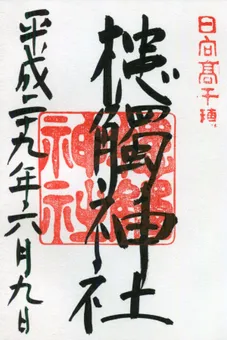 日向高千穂
槵觸神社
槵觸神社
平成二十九年六月九日